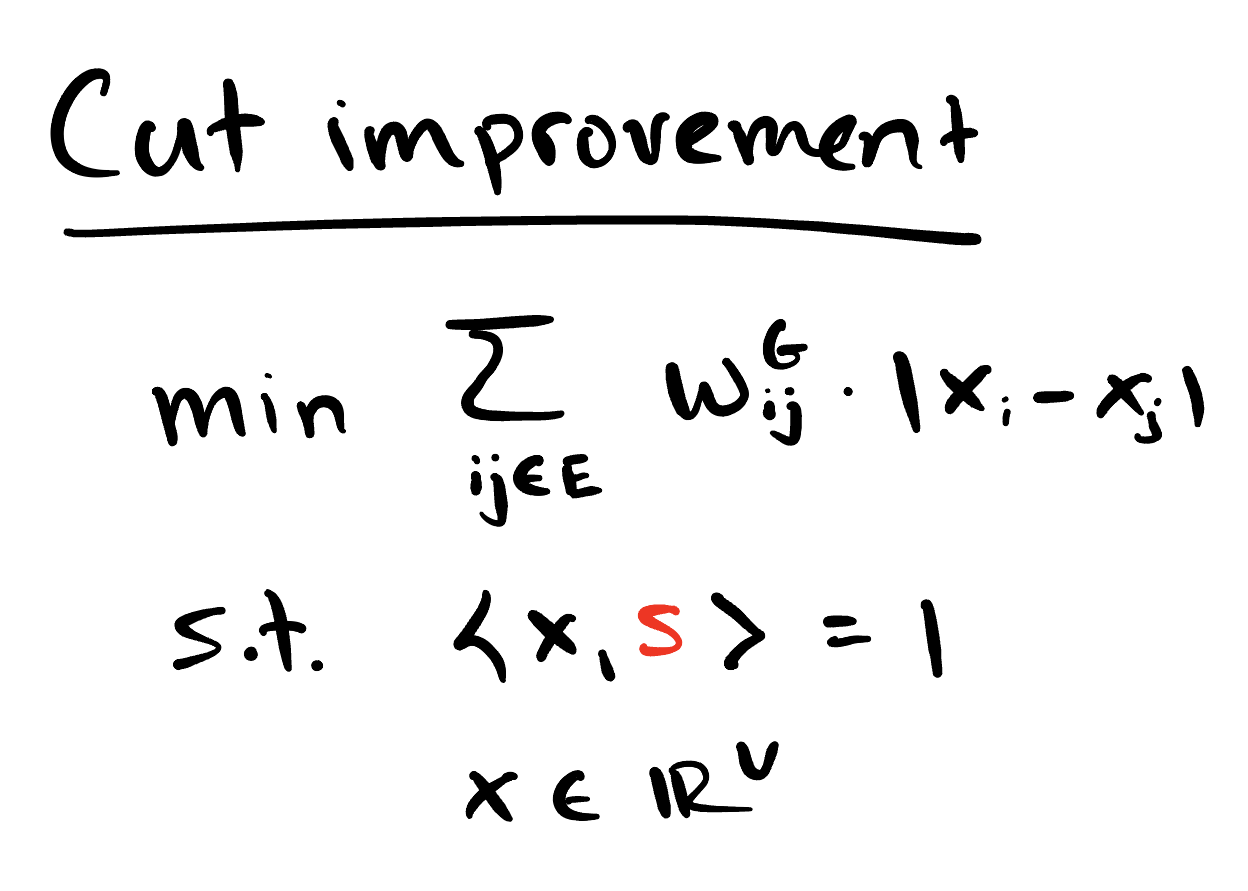 Cut improvement
min ∑_{ij∈E} w_{ij}^G · |x_i - x_j|
s.t. ⟨x, s⟩ = 1
x ∈ ℝ^V